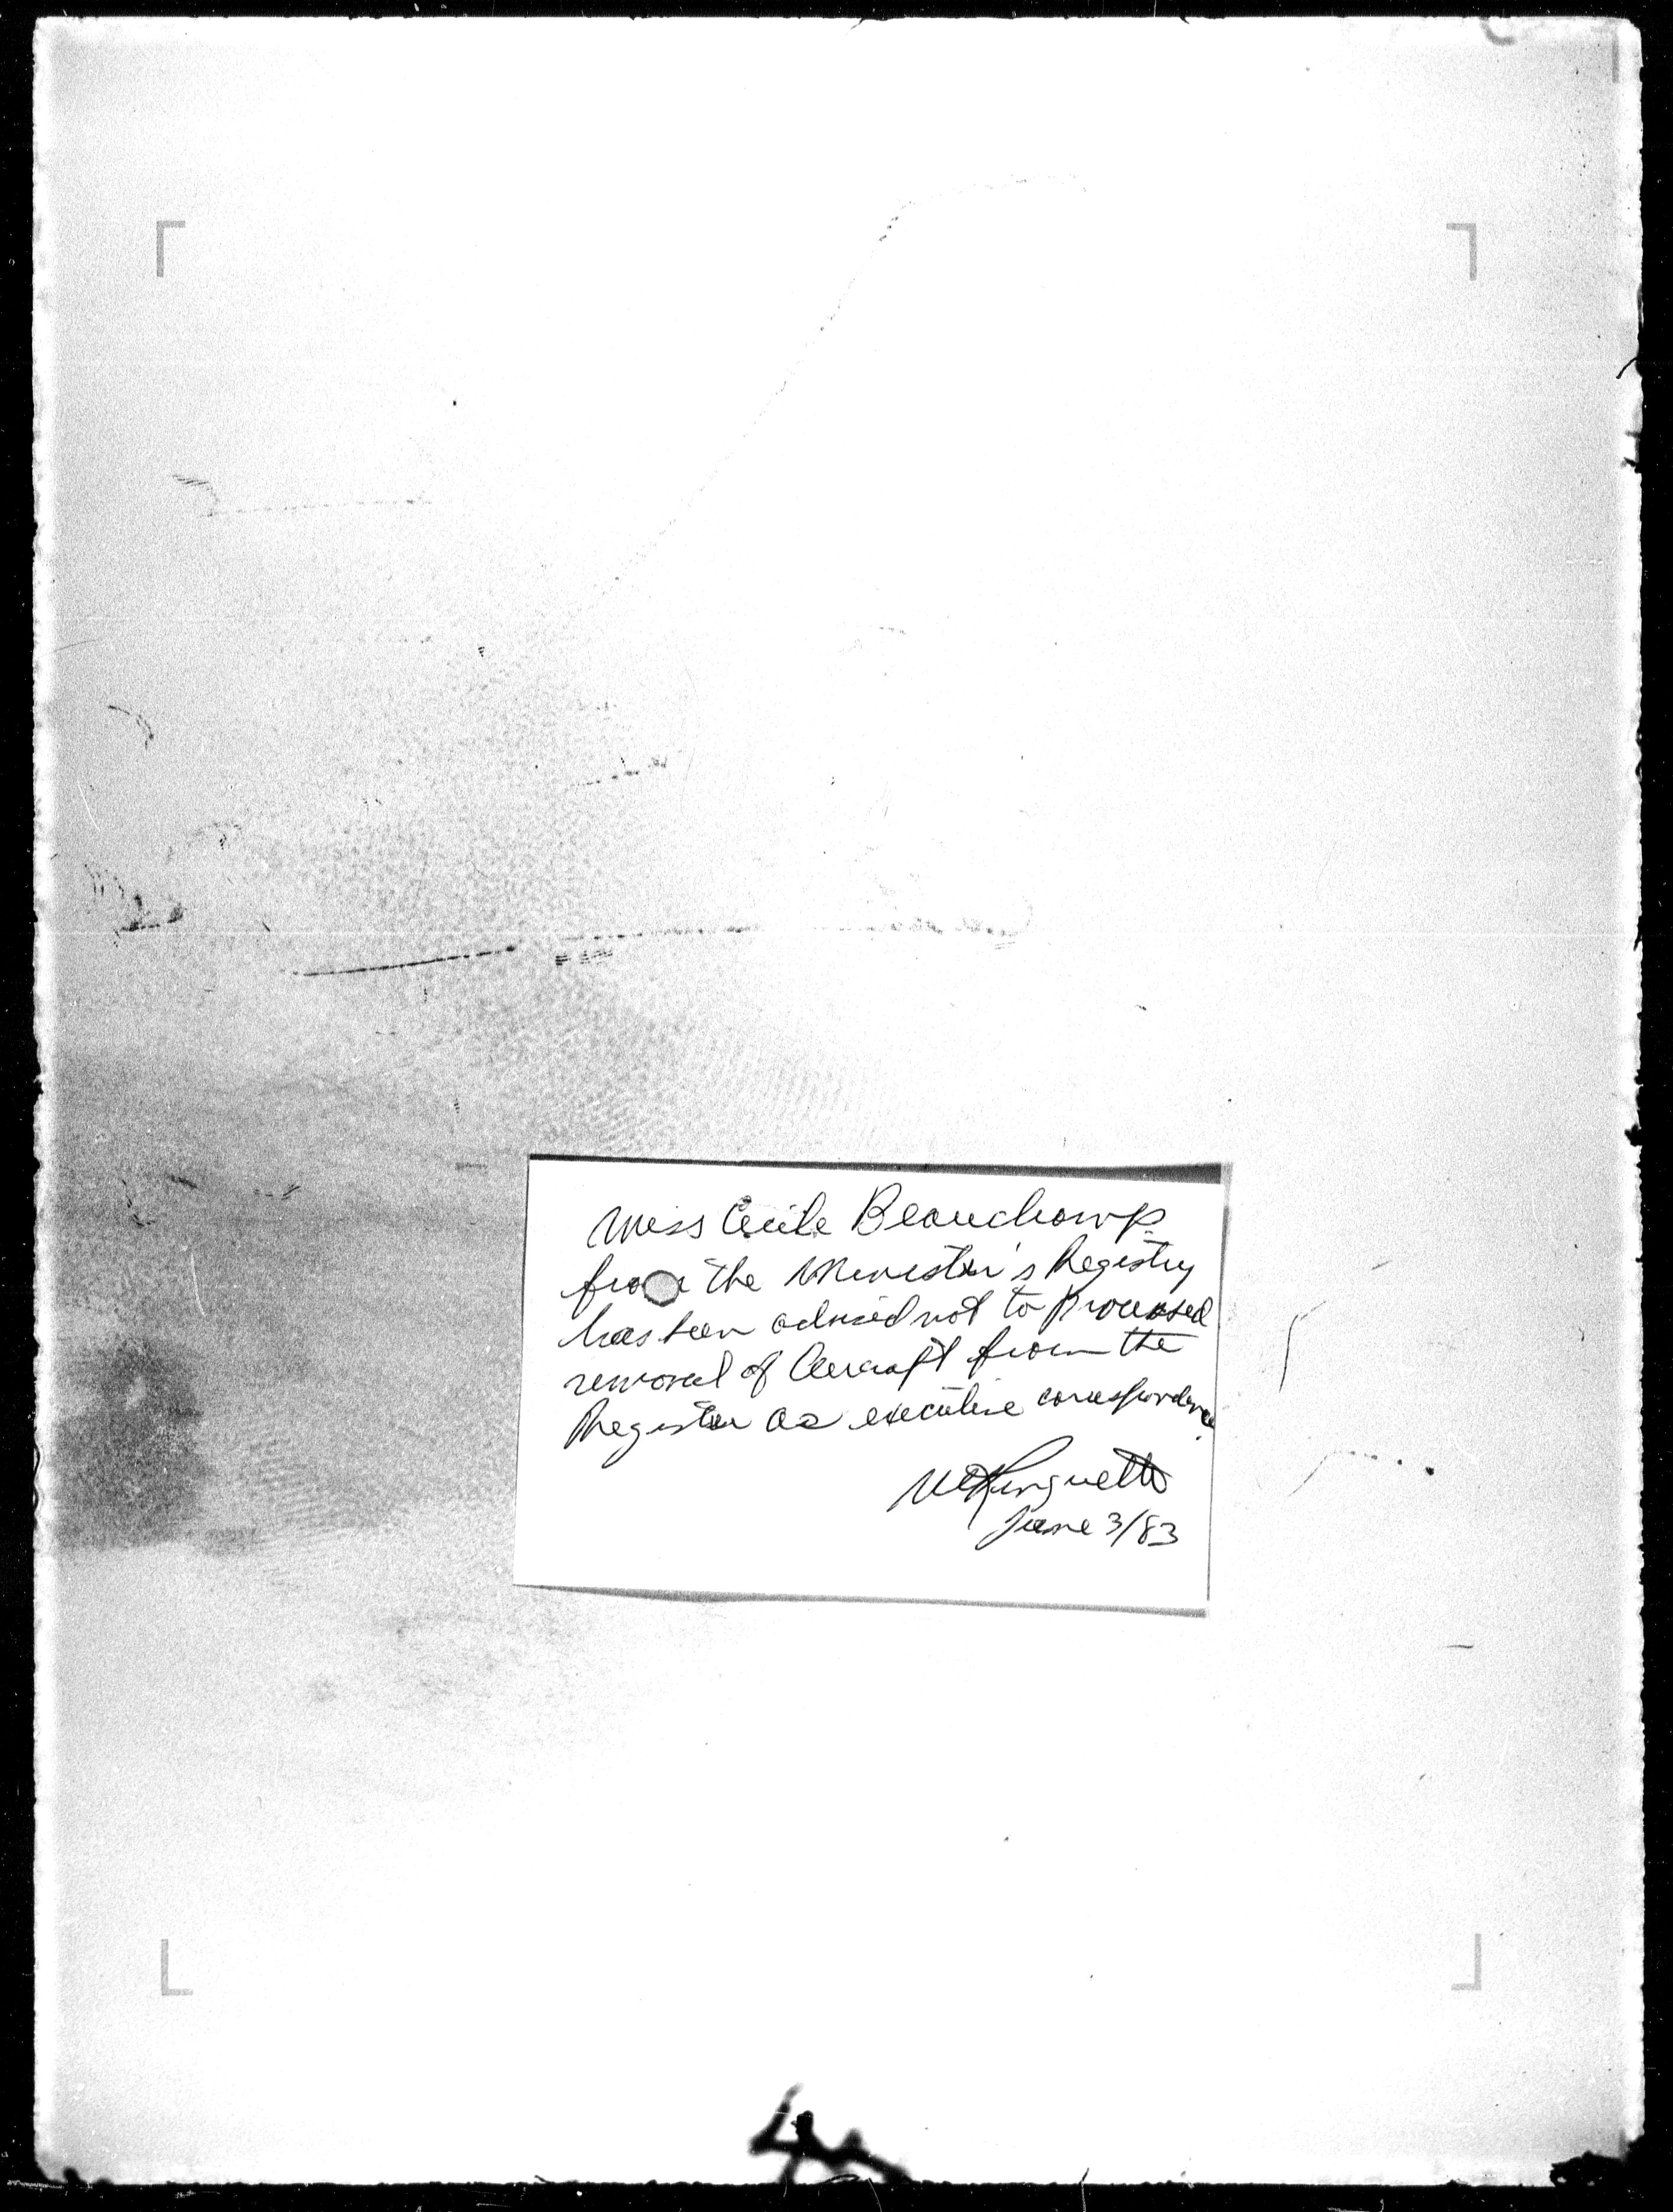 Miss Cecile Beauchamp
from the Minister's Registry
has been advised not to processed
removal of Aircraft from the
Register as executive correspondence
June 3/83